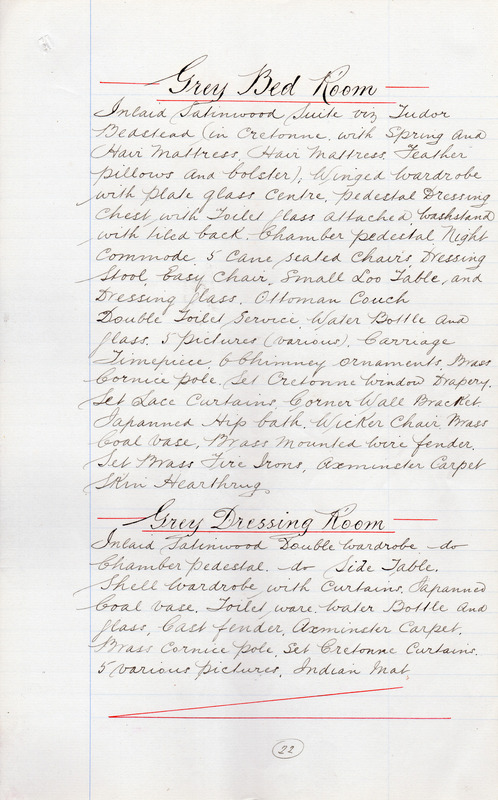 Grey Bed Room
Inlaid Satinwood Suite viz Tudor
Bedstead (in Cretonne. with Spring and
Hair Mattress, Hair Mattress. Feather
pillows and bolster), Winged Wardrobe
with plate glass Centre, pedestal Dressing
Chest, with Toilet glass attached, washstand
with tiled back. Chamber pedestal, Night
Commode, 5 Cane seated Chairs, Dressing
Stool, Easy Chair, Small Loo Table, and
Dressing glass. Ottoman Couch
Double Toilet Service, Water Bottle and
glass. 5 pictures (various), Carriage
Timepiece, 6 Chimney ornaments, Brass
Cornice pole. Set Cretonne Window Drapery.
Set Lace Curtains. Corner Wall Bracket.
Japanned Hip bath. Wicker Chair, Brass
Coal vase, Brass Mounted wire fender.
Set Brass Fire Irons, Axminster Carpet
Skin Hearthrug
Grey Dressing Room
Inlaid Satinwood Double wardrobe do
Chamber Pedestal. do Side Table.
Shell Wardrobe with Curtains, Japanned
Coal vase, Toilet ware, Water Bottle and
glass, Cast fender, Axminster Carpet.
Brass Cornice pole, Set Cretonne Curtains.
5 various pictures, Indian Mat.
22